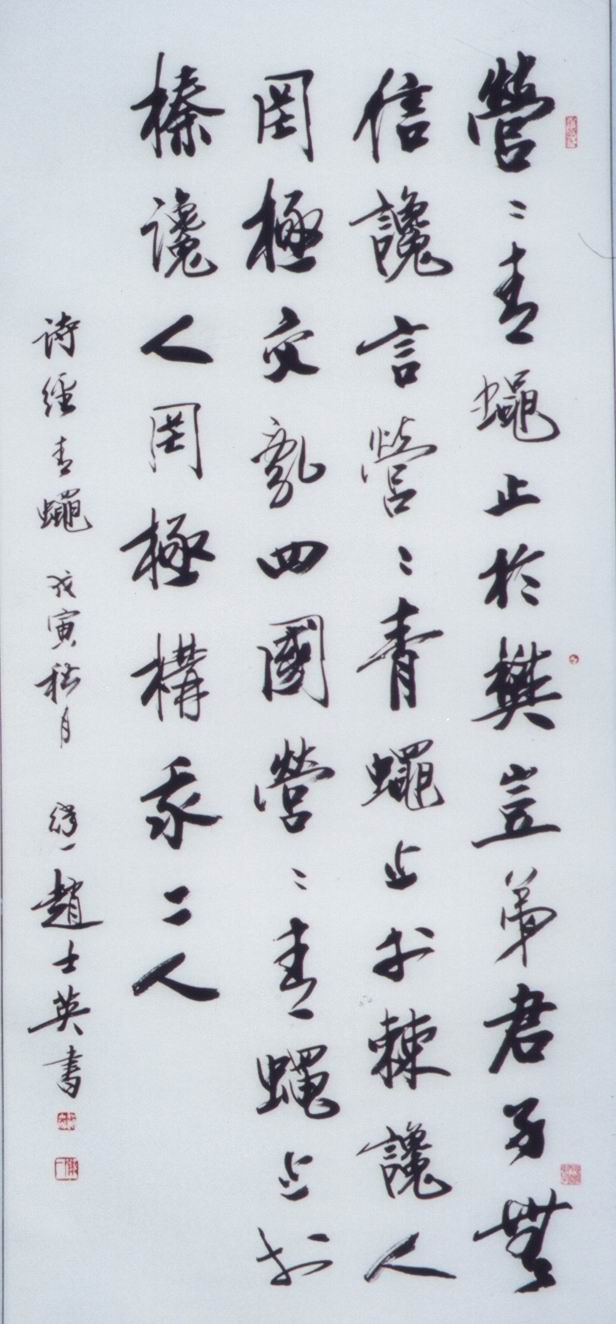 營〻青蠅止於樊豈弟君子無
信讒言營〻青蠅止於棘讒人
罔極交亂四國營〻青蠅止於
榛讒人罔極構我二人
詩經青蠅 戊寅秋月 趙士英書